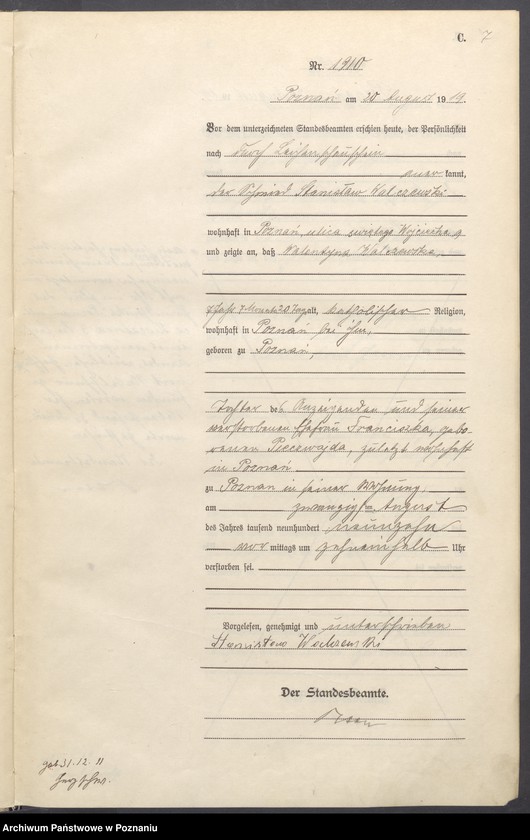 C. 7
Nr. 1910
Poznań am 20 August 1919.
Vor dem unterzeichneten Standesbeamten erschien heute, der Persönlichkeit
nach durch Leichenschauschein
aner kannt,
der Schmied Stanisław Walczewski
wohnhaft in Poznań, ulica świętego Wojciecha 9
und zeigte an, daß Walentyna Walczewska,
7 Jahr 7 Monate 20 Tage alt, katholischer Religion,
wohnhaft in Poznań bei ihm,
geboren zu Poznań,
Tochter des Anzeigenden und seiner
verstorbenen Ehefrau Franciszka, gebo
renen Pieczewajda, zuletzt wohnhaft
in Poznań
zu Poznań in seiner Wohnung,
am zwanzigsten August
des Jahres tausend neunhundert neunzehn
vor mittags um zehneinhalb Uhr
verstorben sei.
Vorgelesen, genehmigt und unterschrieben
Stanisław Walczewski
Der Standesbeamte.
geb. 31.12.11
Archiwum Państwowe w Poznaniu